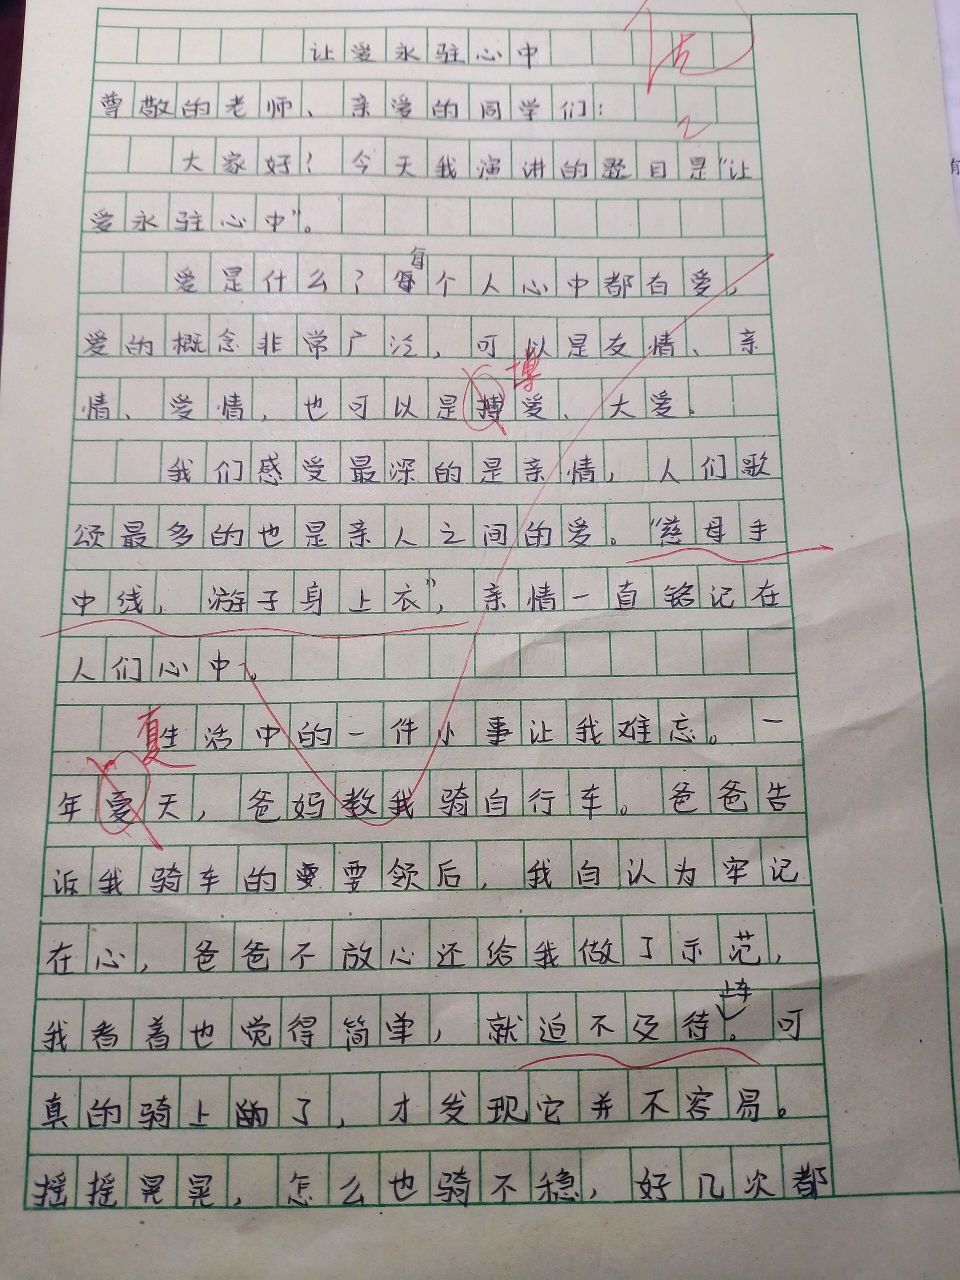 让爱永驻心中
尊敬的老师、亲爱的同学们：
大家好！今天我演讲的题目是“让
爱永驻心中”。
爱是什么？每个人心中都有爱，
爱的概念非常广泛，可以是友情、亲
情、爱情，也可以是搏爱、大爱。
博
我们感受最深的是亲情，人们歌
颂最多的也是亲人之间的爱。“慈母手
中线，游子身上衣”，亲情一直铭记在
人们心中。
生活中的一件小事让我难忘。一
夏
年夏天，爸妈教我骑自行车。爸爸告
诉我骑车的要领后，我自认为牢记
在心，爸爸不放心还给我做了示范，
我看着也觉得简单，就迫不及待上车。可
真的骑上了，才发现它并不容易。
摇摇晃晃，怎么也骑不稳，好几次都